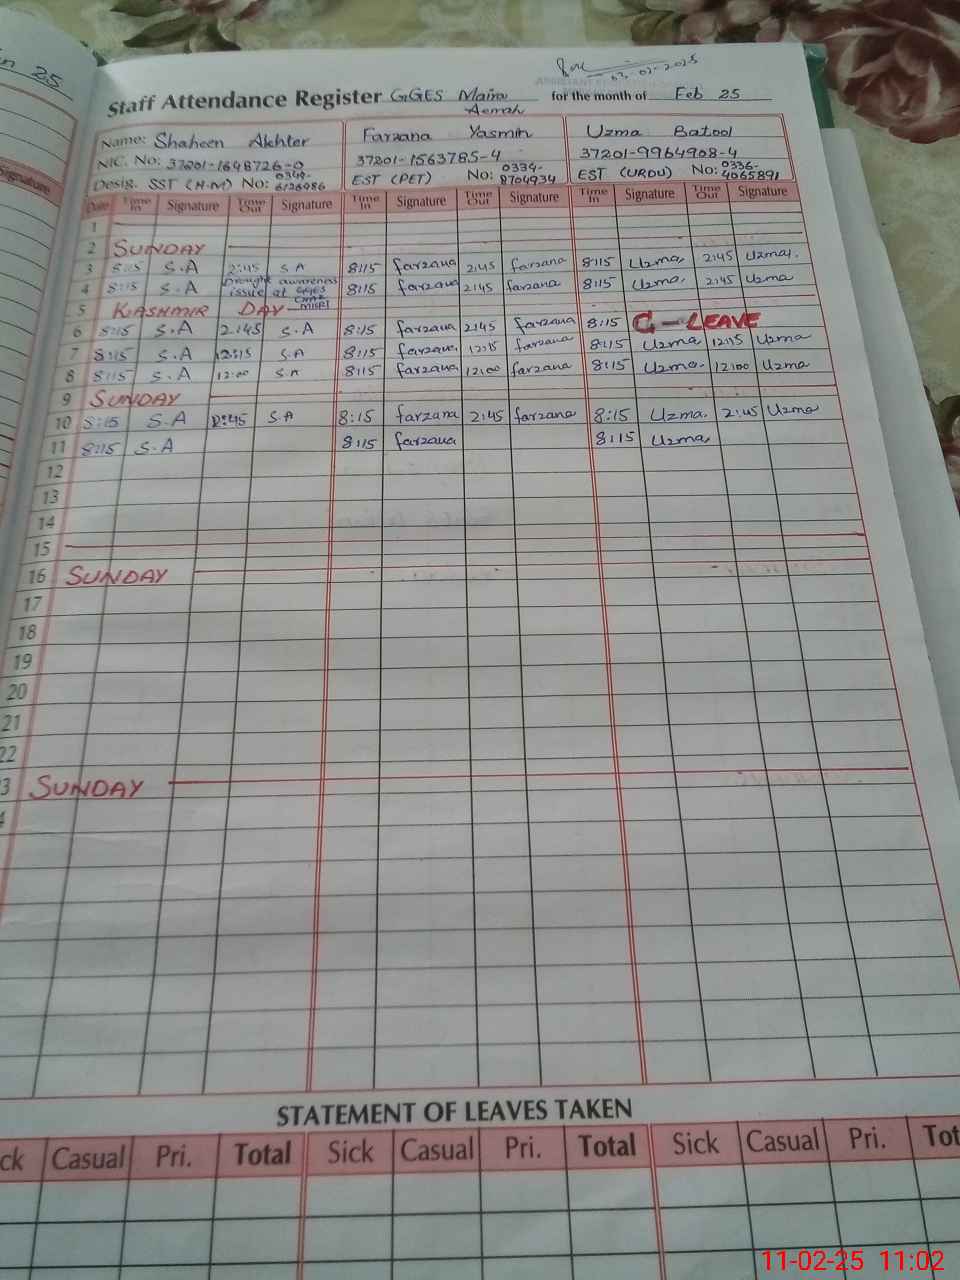 25
Signature
03-02-2025
Staff Attendance Register GGES Maira Aemah for the month of Feb 25
Name: Shaheen Akhter Farzana Yasmin Uzma Batool
NIC. No: 37201-1648726-0 37201-1563785-4 37201-9964908-4
Desig. SST (H.M) No: 0349-6126986 EST (PET) No: 0334-8704934 EST (URDU) No: 0336-4065891
Date Time In Signature Time Out Signature Time In Signature Time Out Signature Time In Signature Time Out Signature
1
2 SUNDAY
3 8:15 S.A 2:45 S.A 8:15 farzana 2:45 farzana 8:15 Uzma. 2:45 Uzma.
4 8:15 S.A Drought awareness issue at GGES 8:15 farzana 2:45 farzana 8:15 Uzma. 2:45 Uzma
5 KASHMIR DAY
6 8:15 S.A 2:45 S.A 8:15 farzana 2:45 farzana 8:15 C-LEAVE
7 8:15 S.A 12:15 S.A 8:15 farzana 12:15 farzana 8:15 Uzma 12:15 Uzma
8 8:15 S.A 12:00 S.A 8:15 farzana 12:00 farzana 8:15 Uzma. 12:00 Uzma
9 SUNDAY
10 8:15 S.A 2:45 S.A 8:15 farzana 2:45 farzana 8:15 Uzma. 2:45 Uzma
11 8:15 S.A 8:15 farzana 8:15 Uzma
12
13
14
15
16 SUNDAY
17
18
19
20
21
22
3 SUNDAY
4
STATEMENT OF LEAVES TAKEN
ck Casual Pri. Total Sick Casual Pri. Total Sick Casual Pri. Tot
11-02-25 11:02